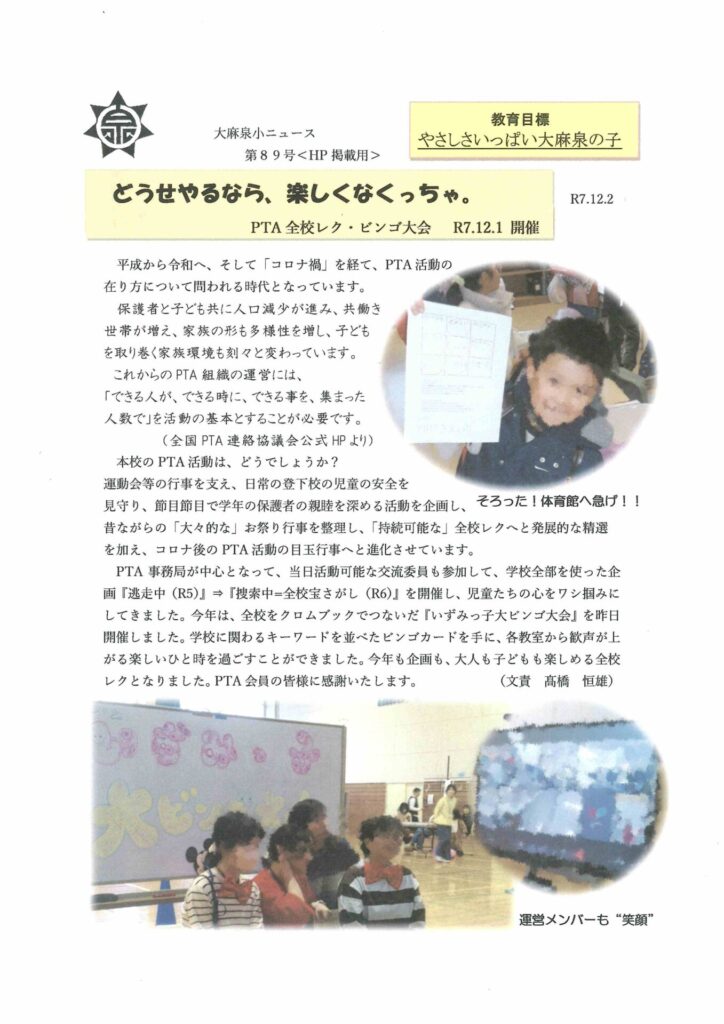 大麻泉小ニュース
第８９号＜HP 掲載用＞
教育目標
やさしさいっぱい大麻泉の子
どうせやるなら、楽しくなくっちゃ。
PTA 全校レク・ビンゴ大会　R7.12.1 開催
R7.12.2
平成から令和へ、そして「コロナ禍」を経て、PTA 活動の
在り方について問われる時代となっています。
保護者と子ども共に人口減少が進み、共働き
世帯が増え、家族の形も多様性を増し、子ども
を取り巻く家族環境も刻々と変わっています。
これからの PTA 組織の運営には、
「できる人が、できる時に、できる事を、集まった
人数で」を活動の基本とすることが必要です。
（全国 PTA 連絡協議会公式 HP より）
本校の PTA 活動は、どうでしょうか？
運動会等の行事を支え、日常の登下校の児童の安全を
見守り、節目節目で学年の保護者の親睦を深める活動を企画し、
そろった！体育館へ急げ！！
昔ながらの「大々的な」お祭り行事を整理し、「持続可能な」全校レクへと発展的な精選
を加え、コロナ後の PTA 活動の目玉行事へと進化させています。
PTA 事務局が中心となって、当日活動可能な交流委員も参加して、学校全部を使った企
画『逃走中（R5）』⇒『捜索中=全校宝さがし（R6）』を開催し、児童たちの心をワシ掴みに
してきました。今年は、全校をクロムブックでつないだ『いずみっ子大ビンゴ大会』を昨日
開催しました。学校に関わるキーワードを並べたビンゴカードを手に、各教室から歓声が上
がる楽しいひと時を過ごすことができました。今年も企画も、大人も子どもも楽しめる全校
レクとなりました。PTA 会員の皆様に感謝いたします。　（文責　髙橋　恒雄）
大ビンゴ
運営メンバーも“笑顔”